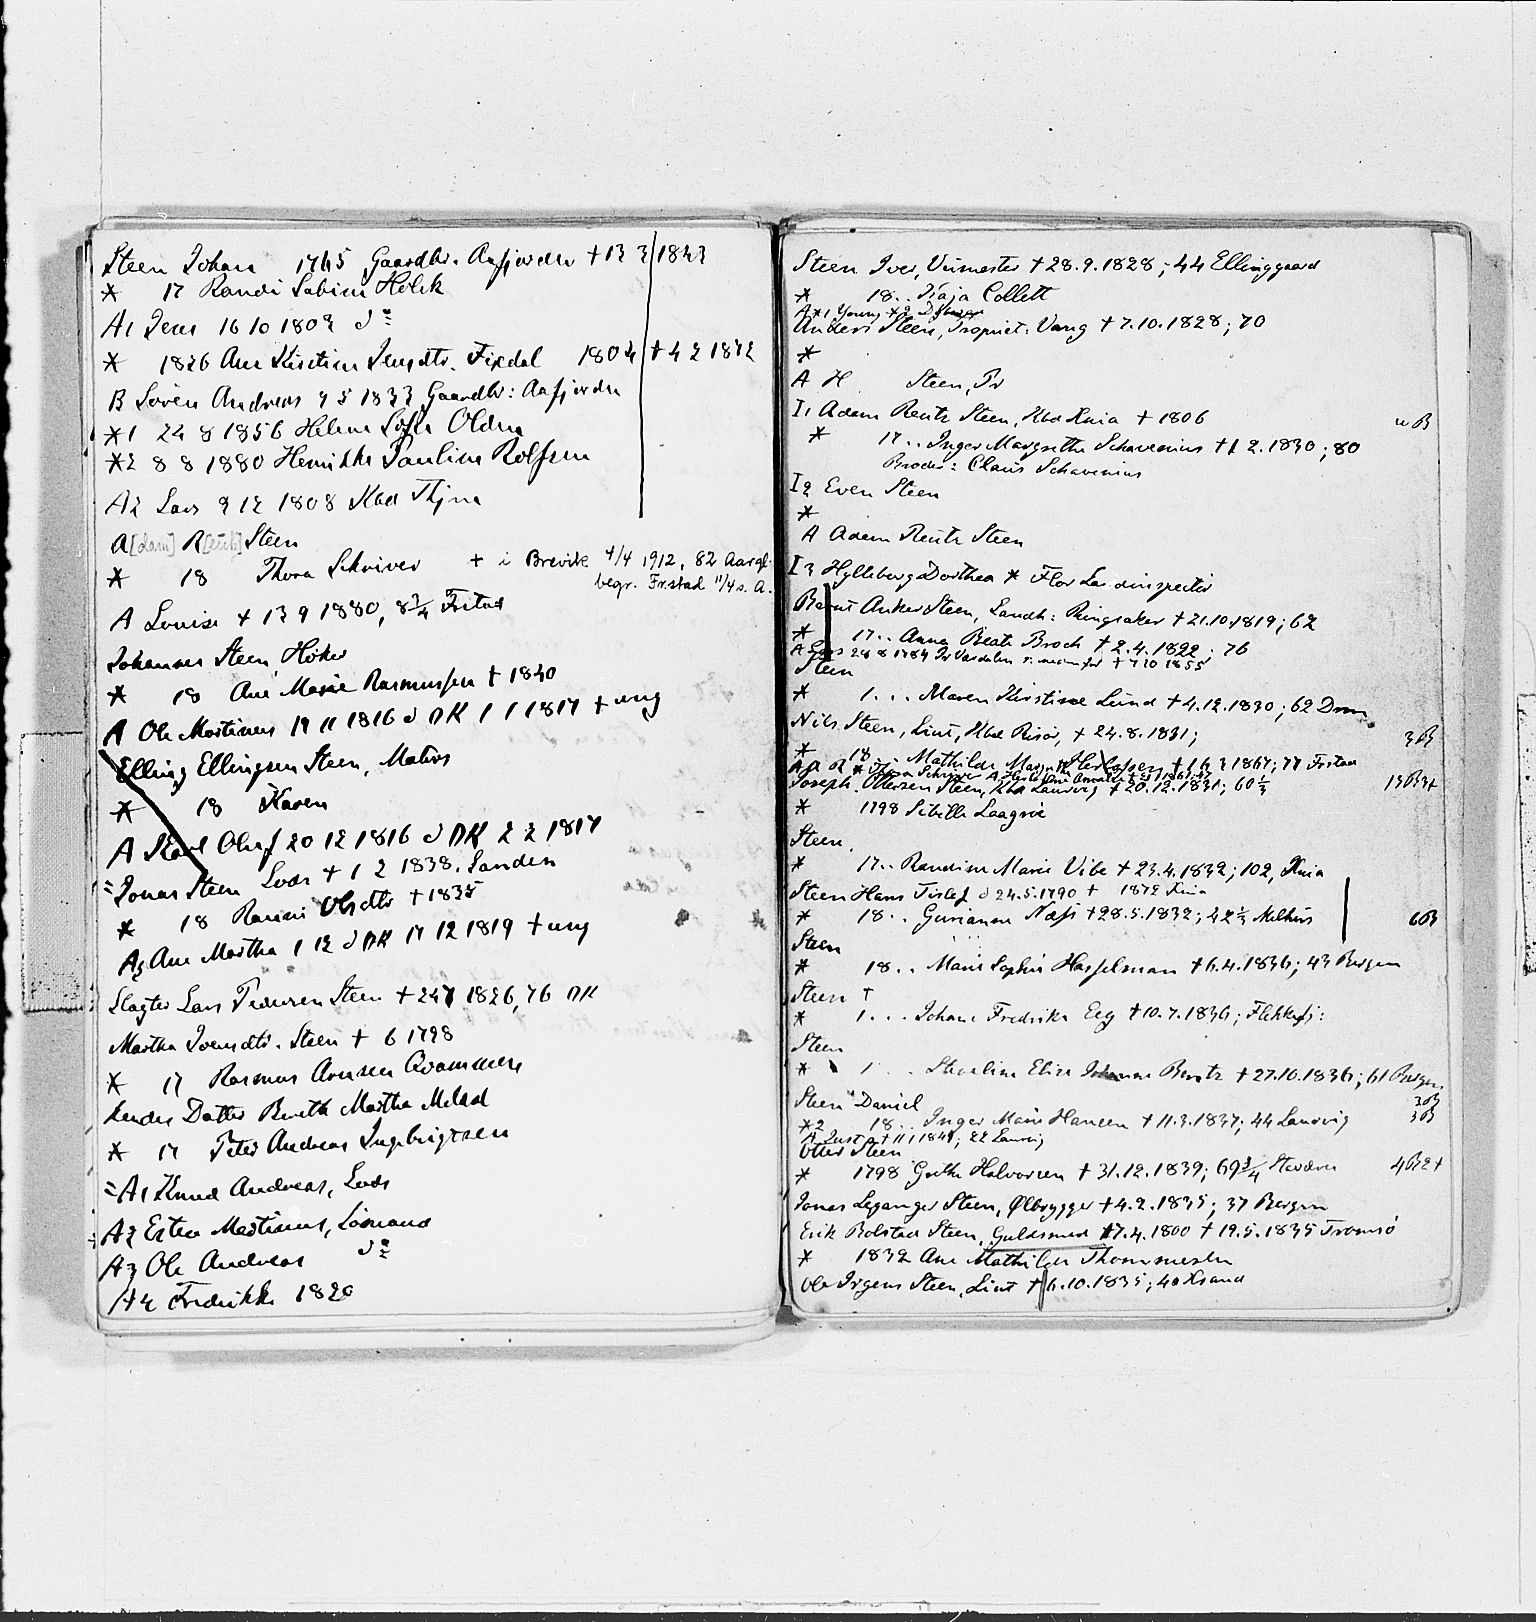 Steen Johan 1765 Gaardbr. Aafjorden † 13 3 1843
* 17 Randi Sabina Holck
A1 Jens 16 10 1802 d°
* 1826 Ane Kirstine Jensdtr. Fixdal 1804 † 4 2 1872
B Søren Andreas 9 5 1833 Gaardbr: Aafjorden
*1 24 8 1856 Helene Sofie Olden
*2 8 8 1880 Henrikke Pauline Rolfsen
A2 Lars 9 12 1808 Kbd
A[dam] R[eutz] Steen
* 18 Thora Schriver † i Brevik 4/4 1912, 82 Aar gl.
begr. Fr.stad 11/4 s. A.
A Louise † 13 9 1880, 8 3/4 Frstad
Johannes Steen, Høker
* 18 Ane Marie Rasmussen † 1840
A Ole Martinus 19 11 1816 d DK 1 1 1817 † ung
Elling Ellingsen Steen, Matros
* 18 Karen
A Karl Oluf 20 12 1816 d DK 2 2 1817
= Jonas Steen Lods † 1 2 1838, Sanden
* 18 Ranni Olsdtr † 1835
A3 Ane Martha 1 12 d DK 17 12 1819 † ung
Slagter Lars Pedersen Steen † 247 1826, 76 DK
Martha Iversdtr. Steen † 6 1798
* 17 Rasmus Arnesen Qvammen
hendes Datter Berith Martha
* 17 Peter Andreas Ingebrigtsen
= A1 Knud Andreas, Lods
A2 Esten Martinus, Lømand
A3 Ole Andreas d°
A4 Fredrikke 1820
Steen Iver, Viemester † 28.9.1828; 44 Ellinggaard
* 18.. Kaja Collett
A *1 Young *2
Anders Steen, Propriet. Vang † 7.10.1828; 70
*
A H Steen, Pr
I1 Adam Reutz Steen, Kbd Xnia † 1806 u B
* 17.. Inger Margrethe Schavenius † 1 2.1830; 80
Broder: Claus Schavenius
I2 Even Steen
*
A Adam Reutz Steen
I3 Hylleborg Dorthea * Flor
Bernt Anker Steen, Landh: Ringsaker † 21.10.1819; 62
* 17.. Anna Beate Broch † 2.4.1822; 76
A Lars 28 8 1784 Pr Værdalen † 7 10 1855
Steen
* 1... Maren Kirstine Lund † 4.12.1830; 62 Drm
Nils Steen, Lint, Kbd Risør, † 24.8.1831; 3 B
* 18.. Mathilde † 1 6 3 1867; 77 Frstad
A A R * Thora Schriver
Joseph Ottersen Steen, Kbd Laurvig † 20.12.1831; 60 1/3 13 B 3 †
* 1798 Sibille Laagrie
Steen.
* 17.. Randine Marie Vibe † 23.4.1832; 102, Xnia
Steen Hans Tislef d 24.5.1790 † 1872 Xnia
* 18.. Gurianne Næss † 28.5.1832; 42 1/2 Melhus 6 B
Steen
* 18.. Marie Sophie Hasselman † 6.4.1836; 43 Bergen
Steen †
* 1... Johane Fredrikke Eeg † 10.7.1836; Flekkefj:
Steen
* 1... Elise † 27.10.1836; 61 Bergen
Steen Daniel 3 B
*2 18.. Inger Marie Hansen † 11.3.1837; 44 Laurvig 3 B
A † 11 1 1841; 22 Laurvig
Otter Steen
* 1798 Grethe Halvorsen † 31.12.1839; 69 3/4 Stavern 4 B 2 †
Jonas Lepanger Steen, Ølbrygger † 4.2.1835; 37 Bergen
Erik Rolstad Steen, Guldsmed *7.4.1800 † 19.5.1835 Tromsø
* 1832 Ane Mathilde Thommesen
Ole Irgens Steen, Lint † 6.10.1835; 40 Xsand